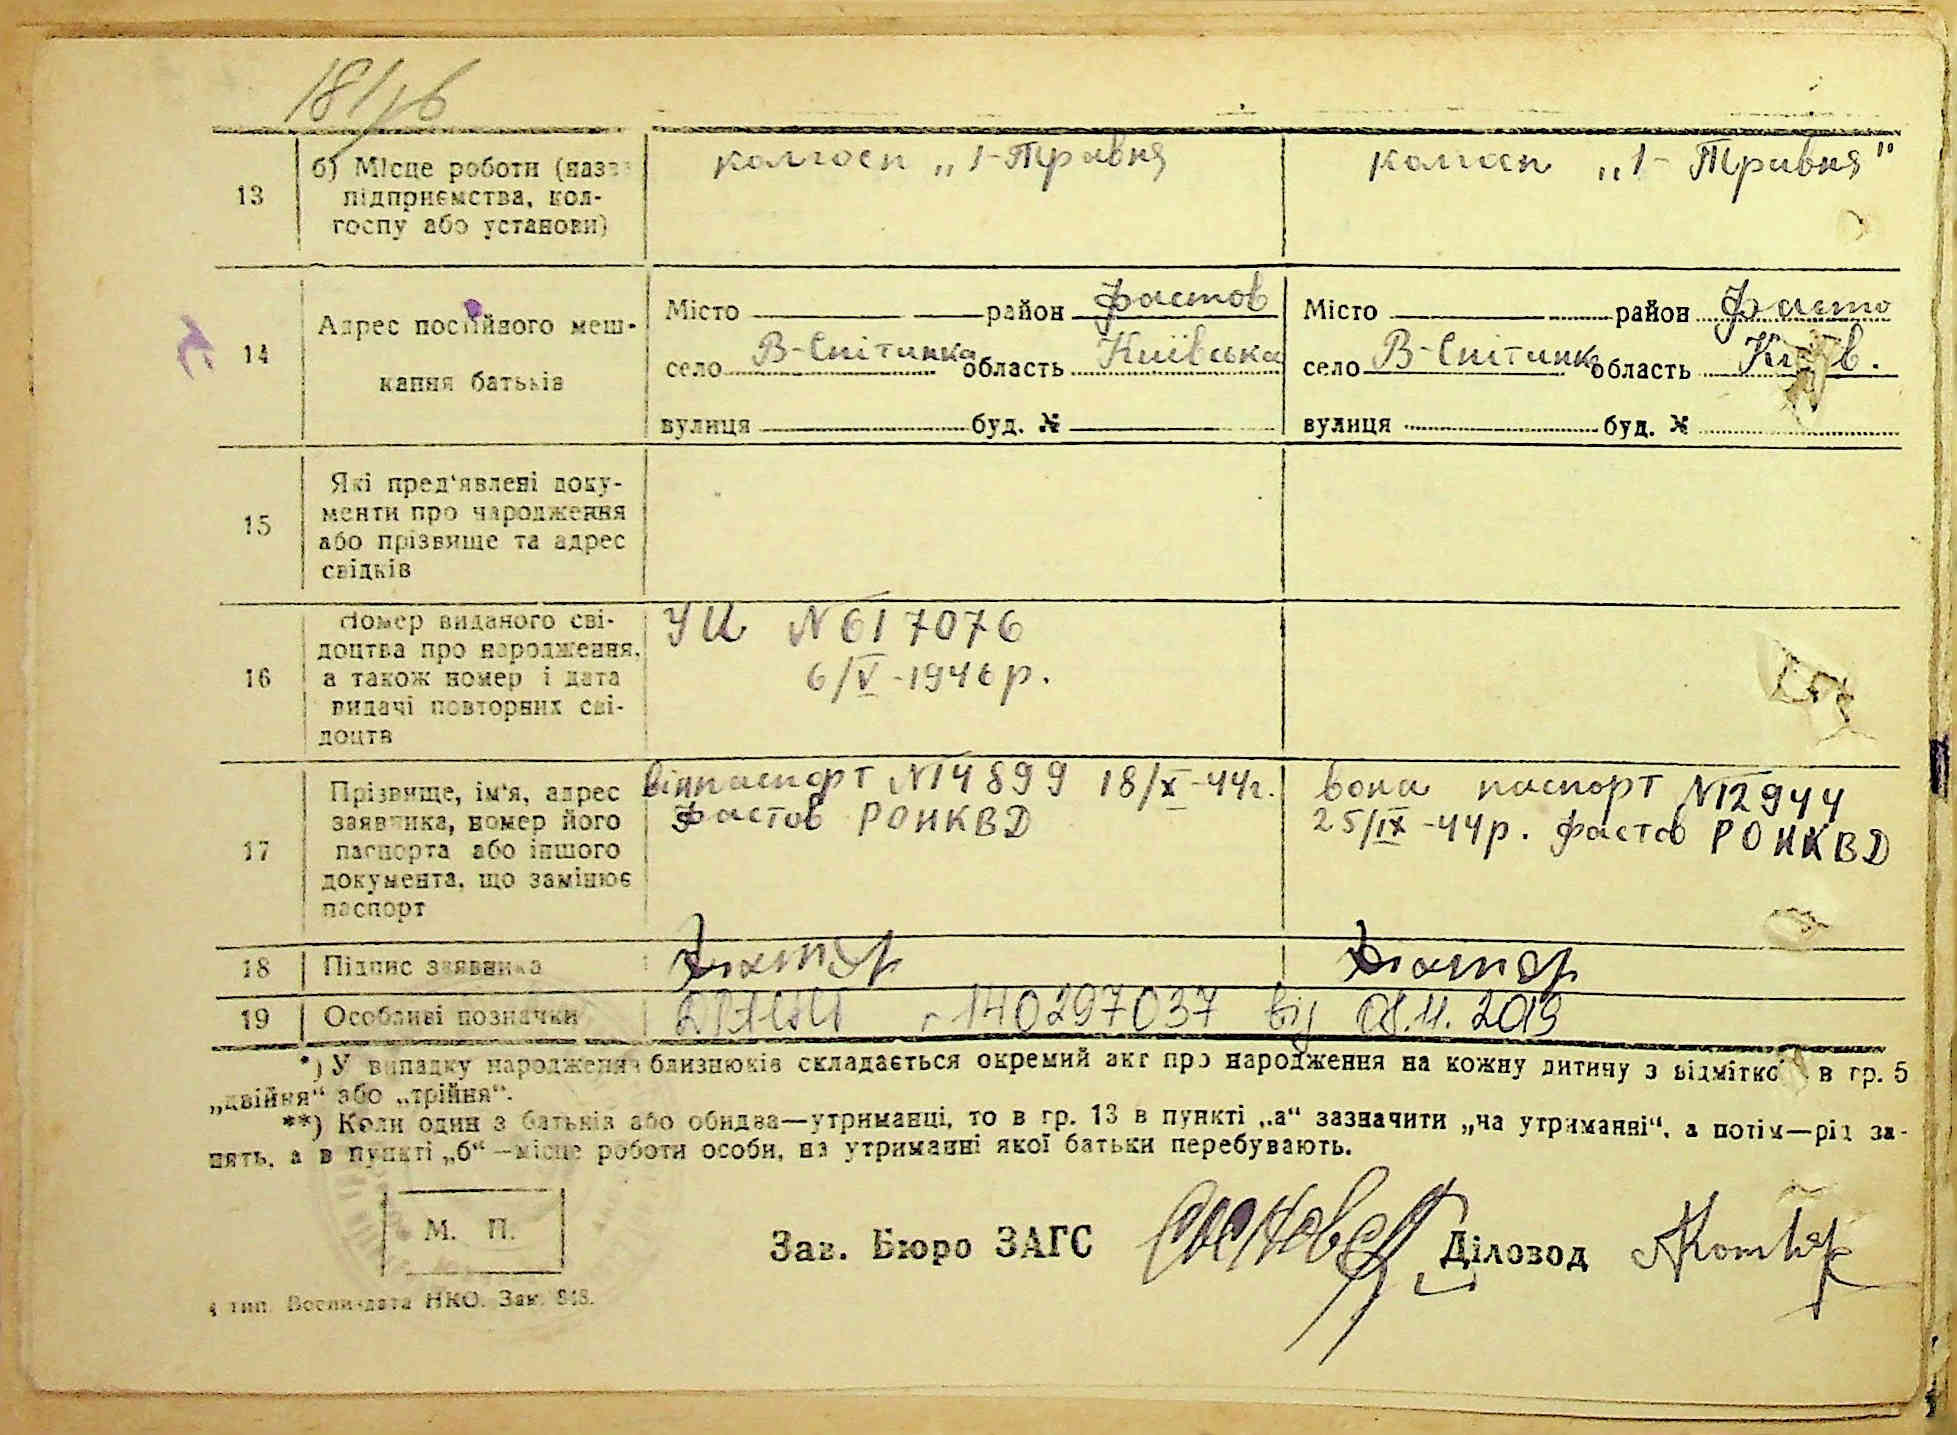 18/76
13
б) Місце роботи (назва
підприємства, кол-
госпу або установи)
колгосп „1-Травня
колгосп „1-Травня"
14
Адрес постійного меш-
кання батьків
Місто район Фастов
село В-Снітинка область Київська
вулиця буд. №
Місто район Фасто
село В-Снітинка область Київ.
вулиця буд. №
15
Які пред'явлені доку-
менти про народження
або прізвище та адрес
свідків
16
Номер виданого сві-
доцтва про народження,
а також номер і дата
видачі повторних сві-
доцтв
УЦ № 617076
6/V-1946 р.
17
Прізвище, ім'я, адрес
заявника, номер його
паспорта або іншого
документа, що замінює
паспорт
він паспорт № 14899 18/X-44г.
Фастов РОНКВД
вона паспорт № 12944
25/IX-44р. Фастов РОНКВД
18
Підпис заявника
19
Особливі позначки
140297037 від 08.11.2019
*) У випадку народження близнюків складається окремий акт про народження на кожну дитину з відміткою в гр. 5
„двійня“ або „трійня“.
**) Коли один з батьків або обидва—утриманці, то в гр. 13 в пункті „а“ зазначити „на утриманні“, а потім—рід за-
нять, а в пункті „б“—місце роботи особи, на утриманні якої батьки перебувають.
М. П.
Зав. Бюро ЗАГС
Діловод
4 тип. Воениздата НКО. Зак. 948.